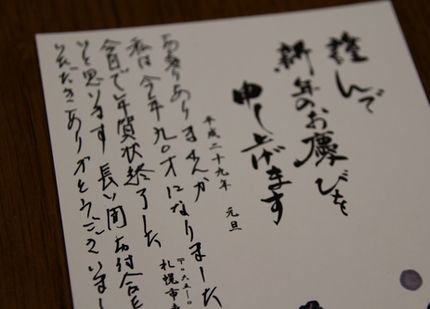 謹んで
新年のお慶びを
申し上げます
平成二十九年 元旦
札幌市
お変りありませんか
私は今年九〇才になりました
今日で年賀状終了した
いと思います 長い間お付合を
いただきありがとうございまし